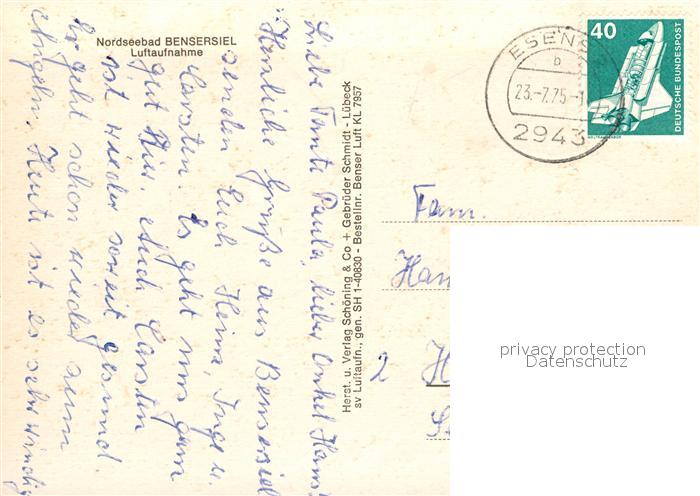 Nordseebad BENSERSIEL
Luftaufnahme
Liebe Tante Paula, lieber Onkel Hans!
Herzliche Grüße aus Bensersiel
senden Euch Heine, Inge u.
Carsten. Es geht uns ganz
gut hier. Auch Carsten
ist wieder soweit gesund.
Er geht schon wieder zum
Angeln. Heute ist es sehr windig
Herst. u. Verlag Schöning & Co + Gebrüder Schmidt - Lübeck
sv Luftaufn., gen. SH 1-40830 - Bestellnr. Benser Luft KL 7957
ESENS
b
23.-7.75-1
2943
40
DEUTSCHE BUNDESPOST
WELTRAUMLABOR
Fam.
Han
2 H
privacy protection
Datenschutz